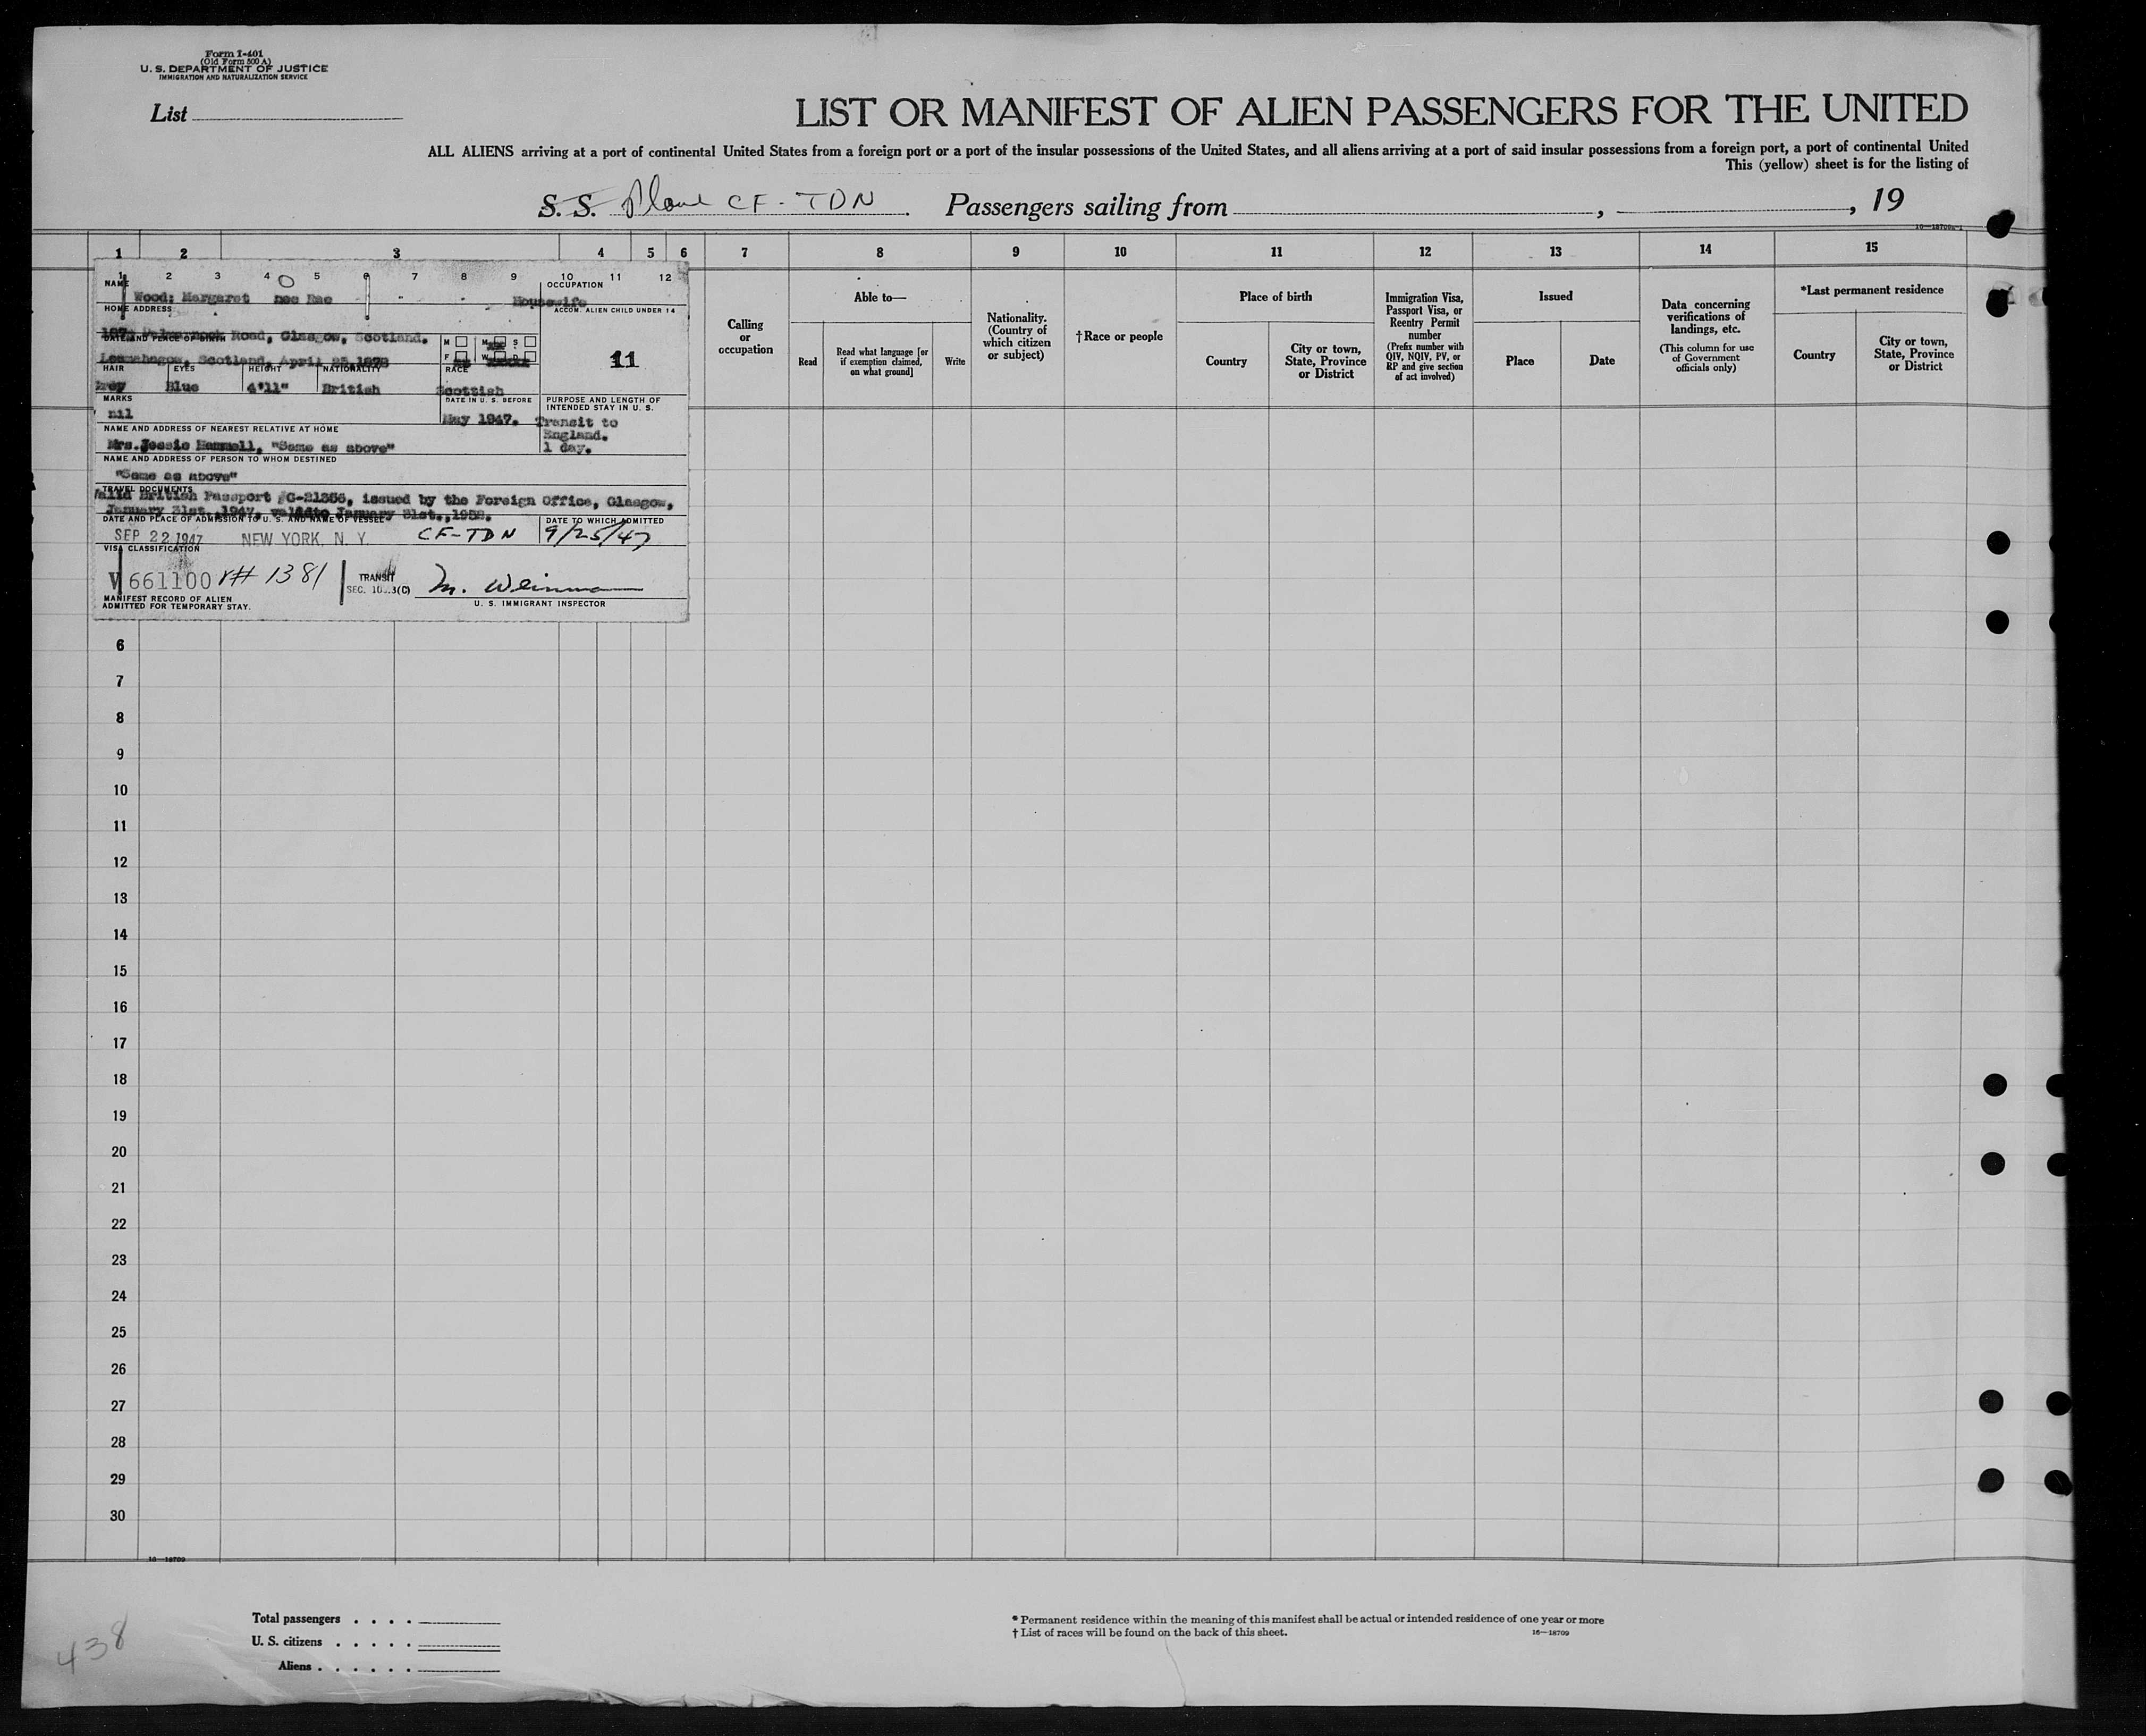 Form I-401
(Old Form 500 A)
U. S. DEPARTMENT OF JUSTICE
IMMIGRATION AND NATURALIZATION SERVICE
List
LIST OR MANIFEST OF ALIEN PASSENGERS FOR THE UNITED
ALL ALIENS arriving at a port of continental United States from a foreign port or a port of the insular possessions of the United States, and all aliens arriving at a port of said insular possessions from a foreign port, a port of continental United
This (yellow) sheet is for the listing of
S. S. Plane CF-TDN Passengers sailing from , , 19
1 2 3 4 5 6 7 8 9 10 11 12 13 14 15
1 2 3 4 5 6 7 8 9 10 11 12
NAME
OCCUPATION
Wood; Margaret nee Rae Housewife
HOME ADDRESS
ACCOM. ALIEN CHILD UNDER 14
Road, Glasgow, Scotland.
DATE AND PLACE OF BIRTH
M M S
F W D
Lesmahagow, Scotland, April 25, 1878
11
HAIR EYES HEIGHT NATIONALITY RACE
Grey Blue 4'11" British Scottish
MARKS
DATE IN U. S. BEFORE
PURPOSE AND LENGTH OF
INTENDED STAY IN U. S.
nil
May 1947. Transit to
England.
1 day.
NAME AND ADDRESS OF NEAREST RELATIVE AT HOME
Mrs. Jessie Hammell, "Same as above"
NAME AND ADDRESS OF PERSON TO WHOM DESTINED
"Same as above"
TRAVEL DOCUMENTS
Valid British Passport #C-21356, issued by the Foreign Office, Glasgow,
January 31st., 1947, valid to January 31st., 1952.
DATE AND PLACE OF ADMISSION TO U. S. AND NAME OF VESSEL
DATE TO WHICH ADMITTED
SEP 22 1947 NEW YORK, N. Y. CF-TDN 9/25/47
VISA CLASSIFICATION
V 661100 V# 1381
TRANSIT
SEC. 10 3(C)
M. Weinman
MANIFEST RECORD OF ALIEN
ADMITTED FOR TEMPORARY STAY.
U. S. IMMIGRANT INSPECTOR
Calling
or
occupation
Able to—
Read
Read what language [or
if exemption claimed,
on what ground]
Write
Nationality.
(Country of
which citizen
or subject)
†Race or people
Place of birth
Country
City or town,
State, Province
or District
Immigration Visa,
Passport Visa, or
Reentry Permit
number
(Prefix number with
QIV, NQIV, PV, or
RP and give section
of act involved)
Issued
Place
Date
Data concerning
verifications of
landings, etc.
(This column for use
of Government
officials only)
*Last permanent residence
Country
City or town,
State, Province
or District
6
7
8
9
10
11
12
13
14
15
16
17
18
19
20
21
22
23
24
25
26
27
28
29
30
16—18709
Total passengers . . . .
U. S. citizens . . . . .
Aliens . . . . . .
* Permanent residence within the meaning of this manifest shall be actual or intended residence of one year or more
† List of races will be found on the back of this sheet.
16—18709
438